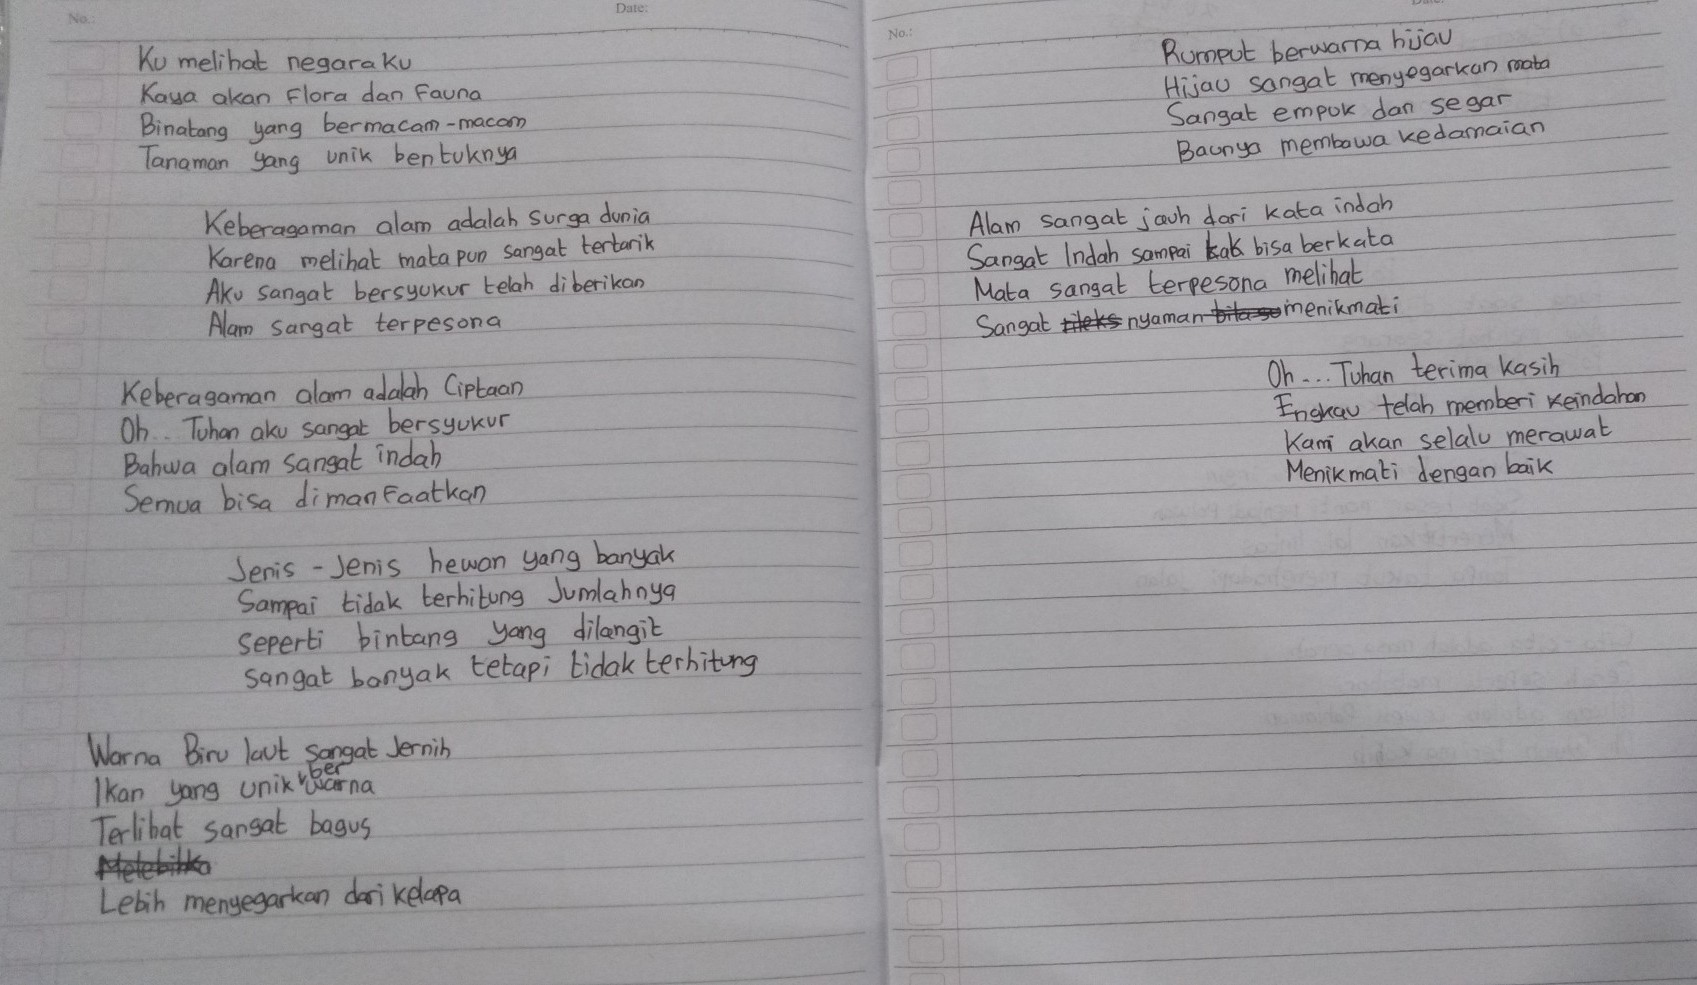 No.:
Date:
Ku melihat negaraku
Kaya akan Flora dan Fauna
Binatang yang bermacam-macam
Tanaman yang unik bentuknya
Keberagaman alam adalah surga dunia
Karena melihat mata pun sangat tertarik
Aku sangat bersyukur telah diberikan
Alam sangat terpesona
Keberagaman alam adalah Ciptaan
Oh.. Tuhan aku sangat bersyukur
Bahwa alam sangat indah
Semua bisa dimanfaatkan
Jenis - Jenis hewan yang banyak
Sampai tidak terhitung Jumlahnya
seperti bintang yang dilangit
sangat banyak tetapi tidak terhitung
Warna Biru laut sangat Jernih
Ikan yang unik berwarna
Terlihat sangat bagus
Lebih menyegarkan dari kelapa
No.:
Rumput berwarna hijau
Hijau sangat menyegarkan mata
Sangat empuk dan segar
Baunya membawa kedamaian
Alam sangat jauh dari kata indah
Sangat Indah sampai tak bisa berkata
Mata sangat terpesona melihat
Sangat nyaman menikmati
Oh ... Tuhan terima kasih
Engkau telah memberi keindahan
Kami akan selalu merawat
Menikmati dengan baik